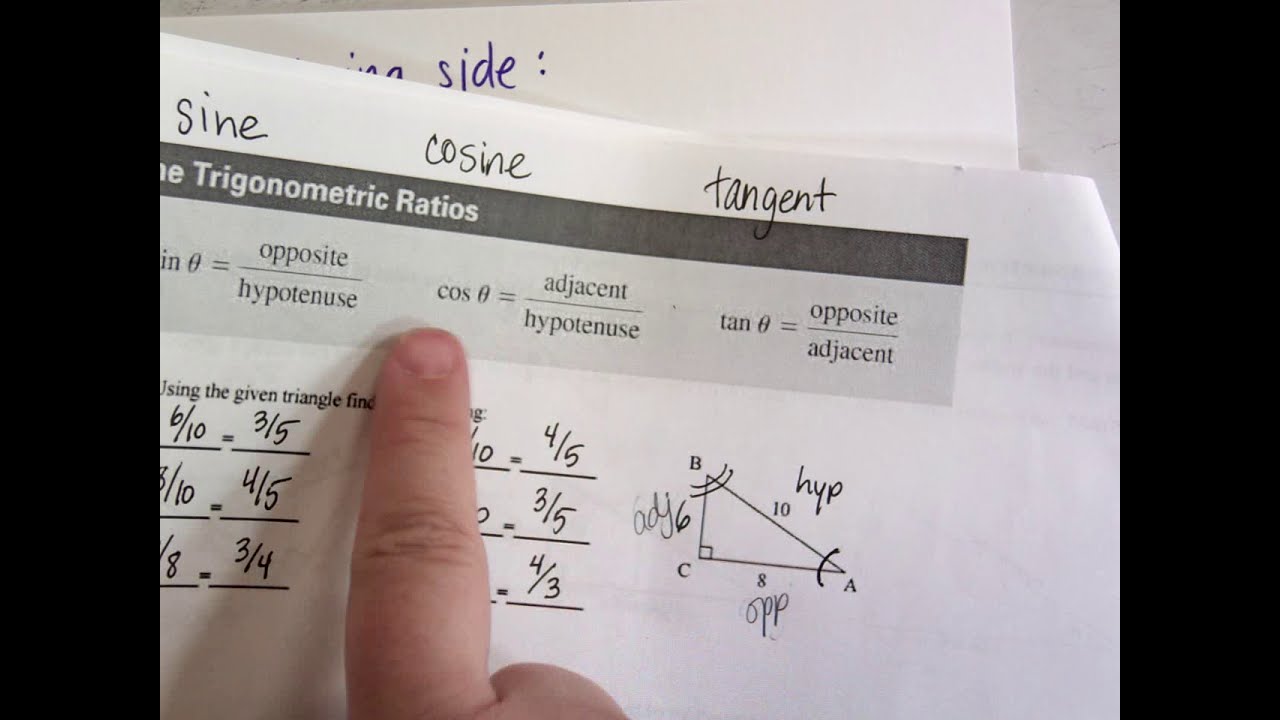 side :
sine cosine tangent
Trigonometric Ratios
in θ = opposite/hypotenuse cos θ = adjacent/hypotenuse tan θ = opposite/adjacent
Using the given triangle
6/10 = 3/5 /10 = 4/5
/10 = 4/5 = 3/5
/8 = 3/4 = 4/3
B
hyp
10
adj 6
C
8
A
opp